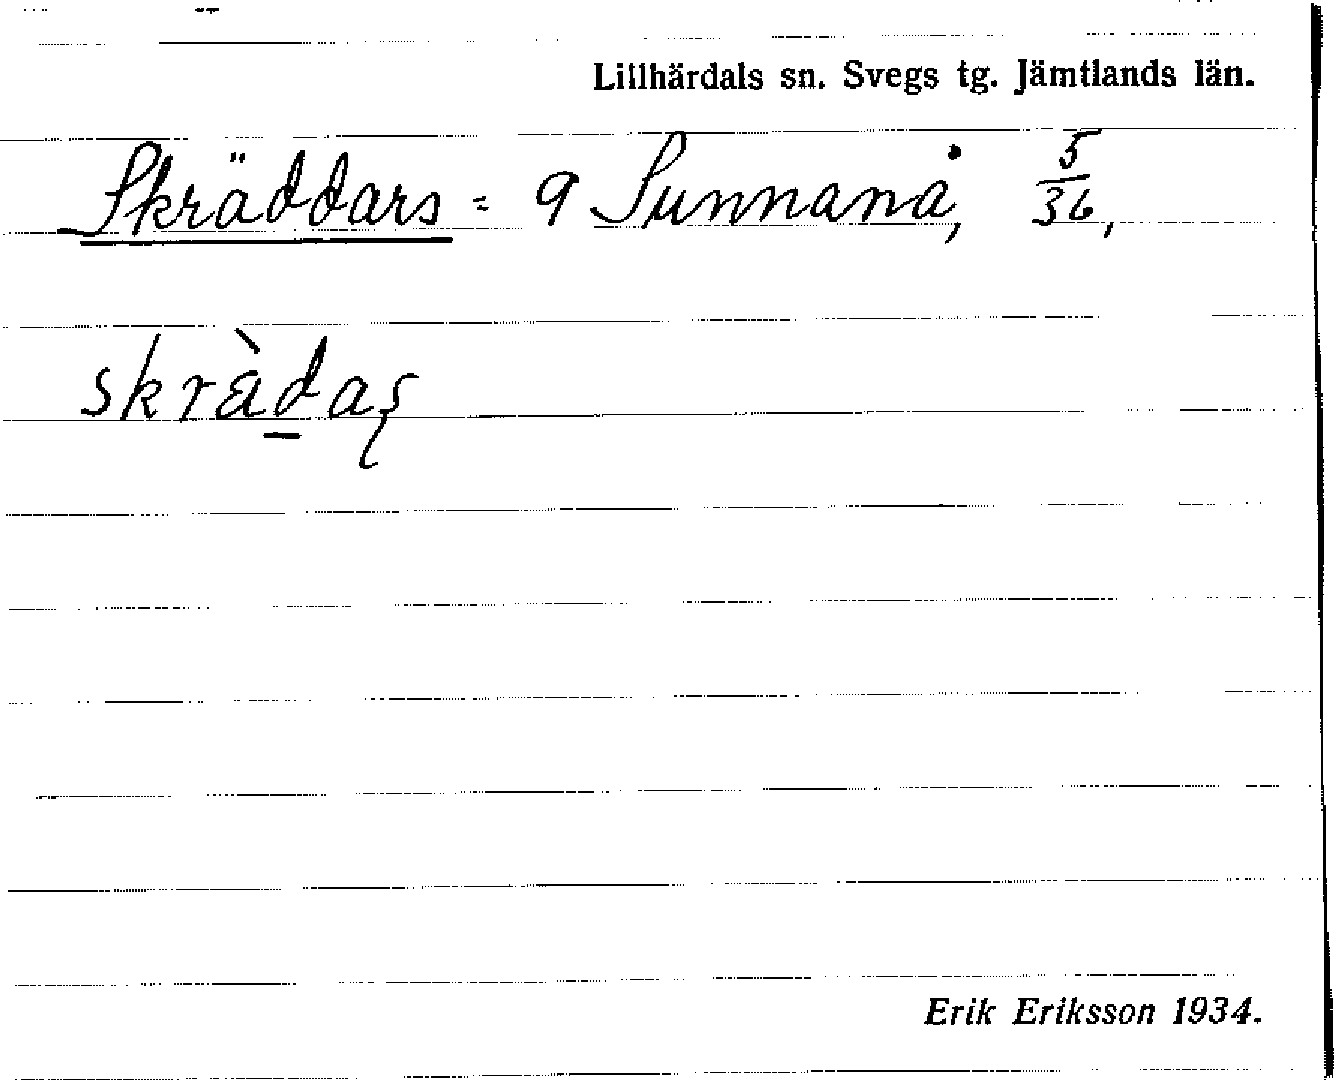 Lillhärdals sn. Svegs tg. Jämtlands län.
Skräddars = 9 Sunnanå, 5/36,
skrädaş
Erik Eriksson 1934.